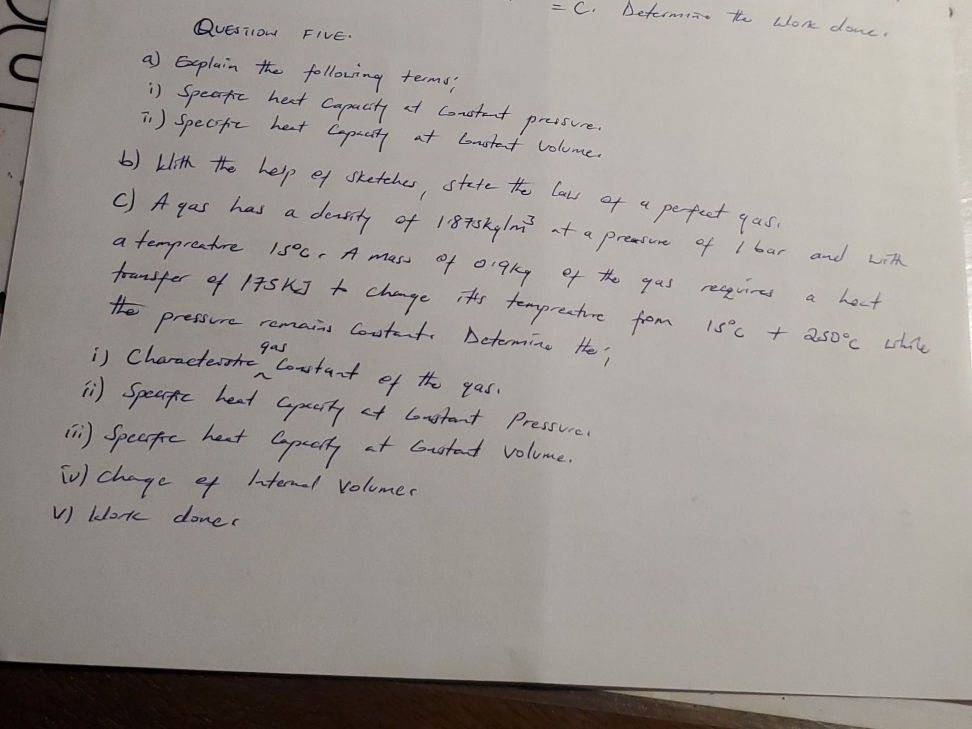 = C. Determine the work done.
QUESTION FIVE.
a) Explain the following terms;
i) Specific heat Capacity at Constant pressure.
ii) Specific heat Capacity at Constant Volume.
b) With the help of sketches, state the laws of a perfect gas.
C) A gas has a density of 1.875kg/m³ at a pressure of 1 bar and with
a tempreature 15°C. A mass of 0.9kg of the gas requires a heat
transfer of 175KJ to change its tempreature from 15°C to 250°C while
the pressure remains Constant. Determine the;
i) Characteristic gas Constant of the gas.
ii) Specific heat Capacity at Constant Pressure.
iii) Specific heat Capacity at Constant Volume.
iv) Change of Internal Volume.
V) Work done.